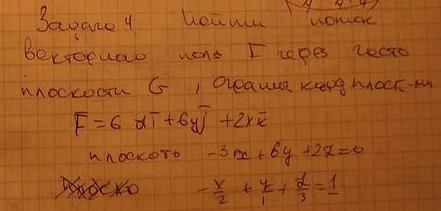 Задача 4 Найти поток
векторного поля F через часть
плоскости G, огранич коорд плоск-ми
F̄ = 6 x ī + 6y j̄ + 2x k̄
плоскоть -3x + 6y + 2z = 6
-x/2 + y/1 + z/3 = 1